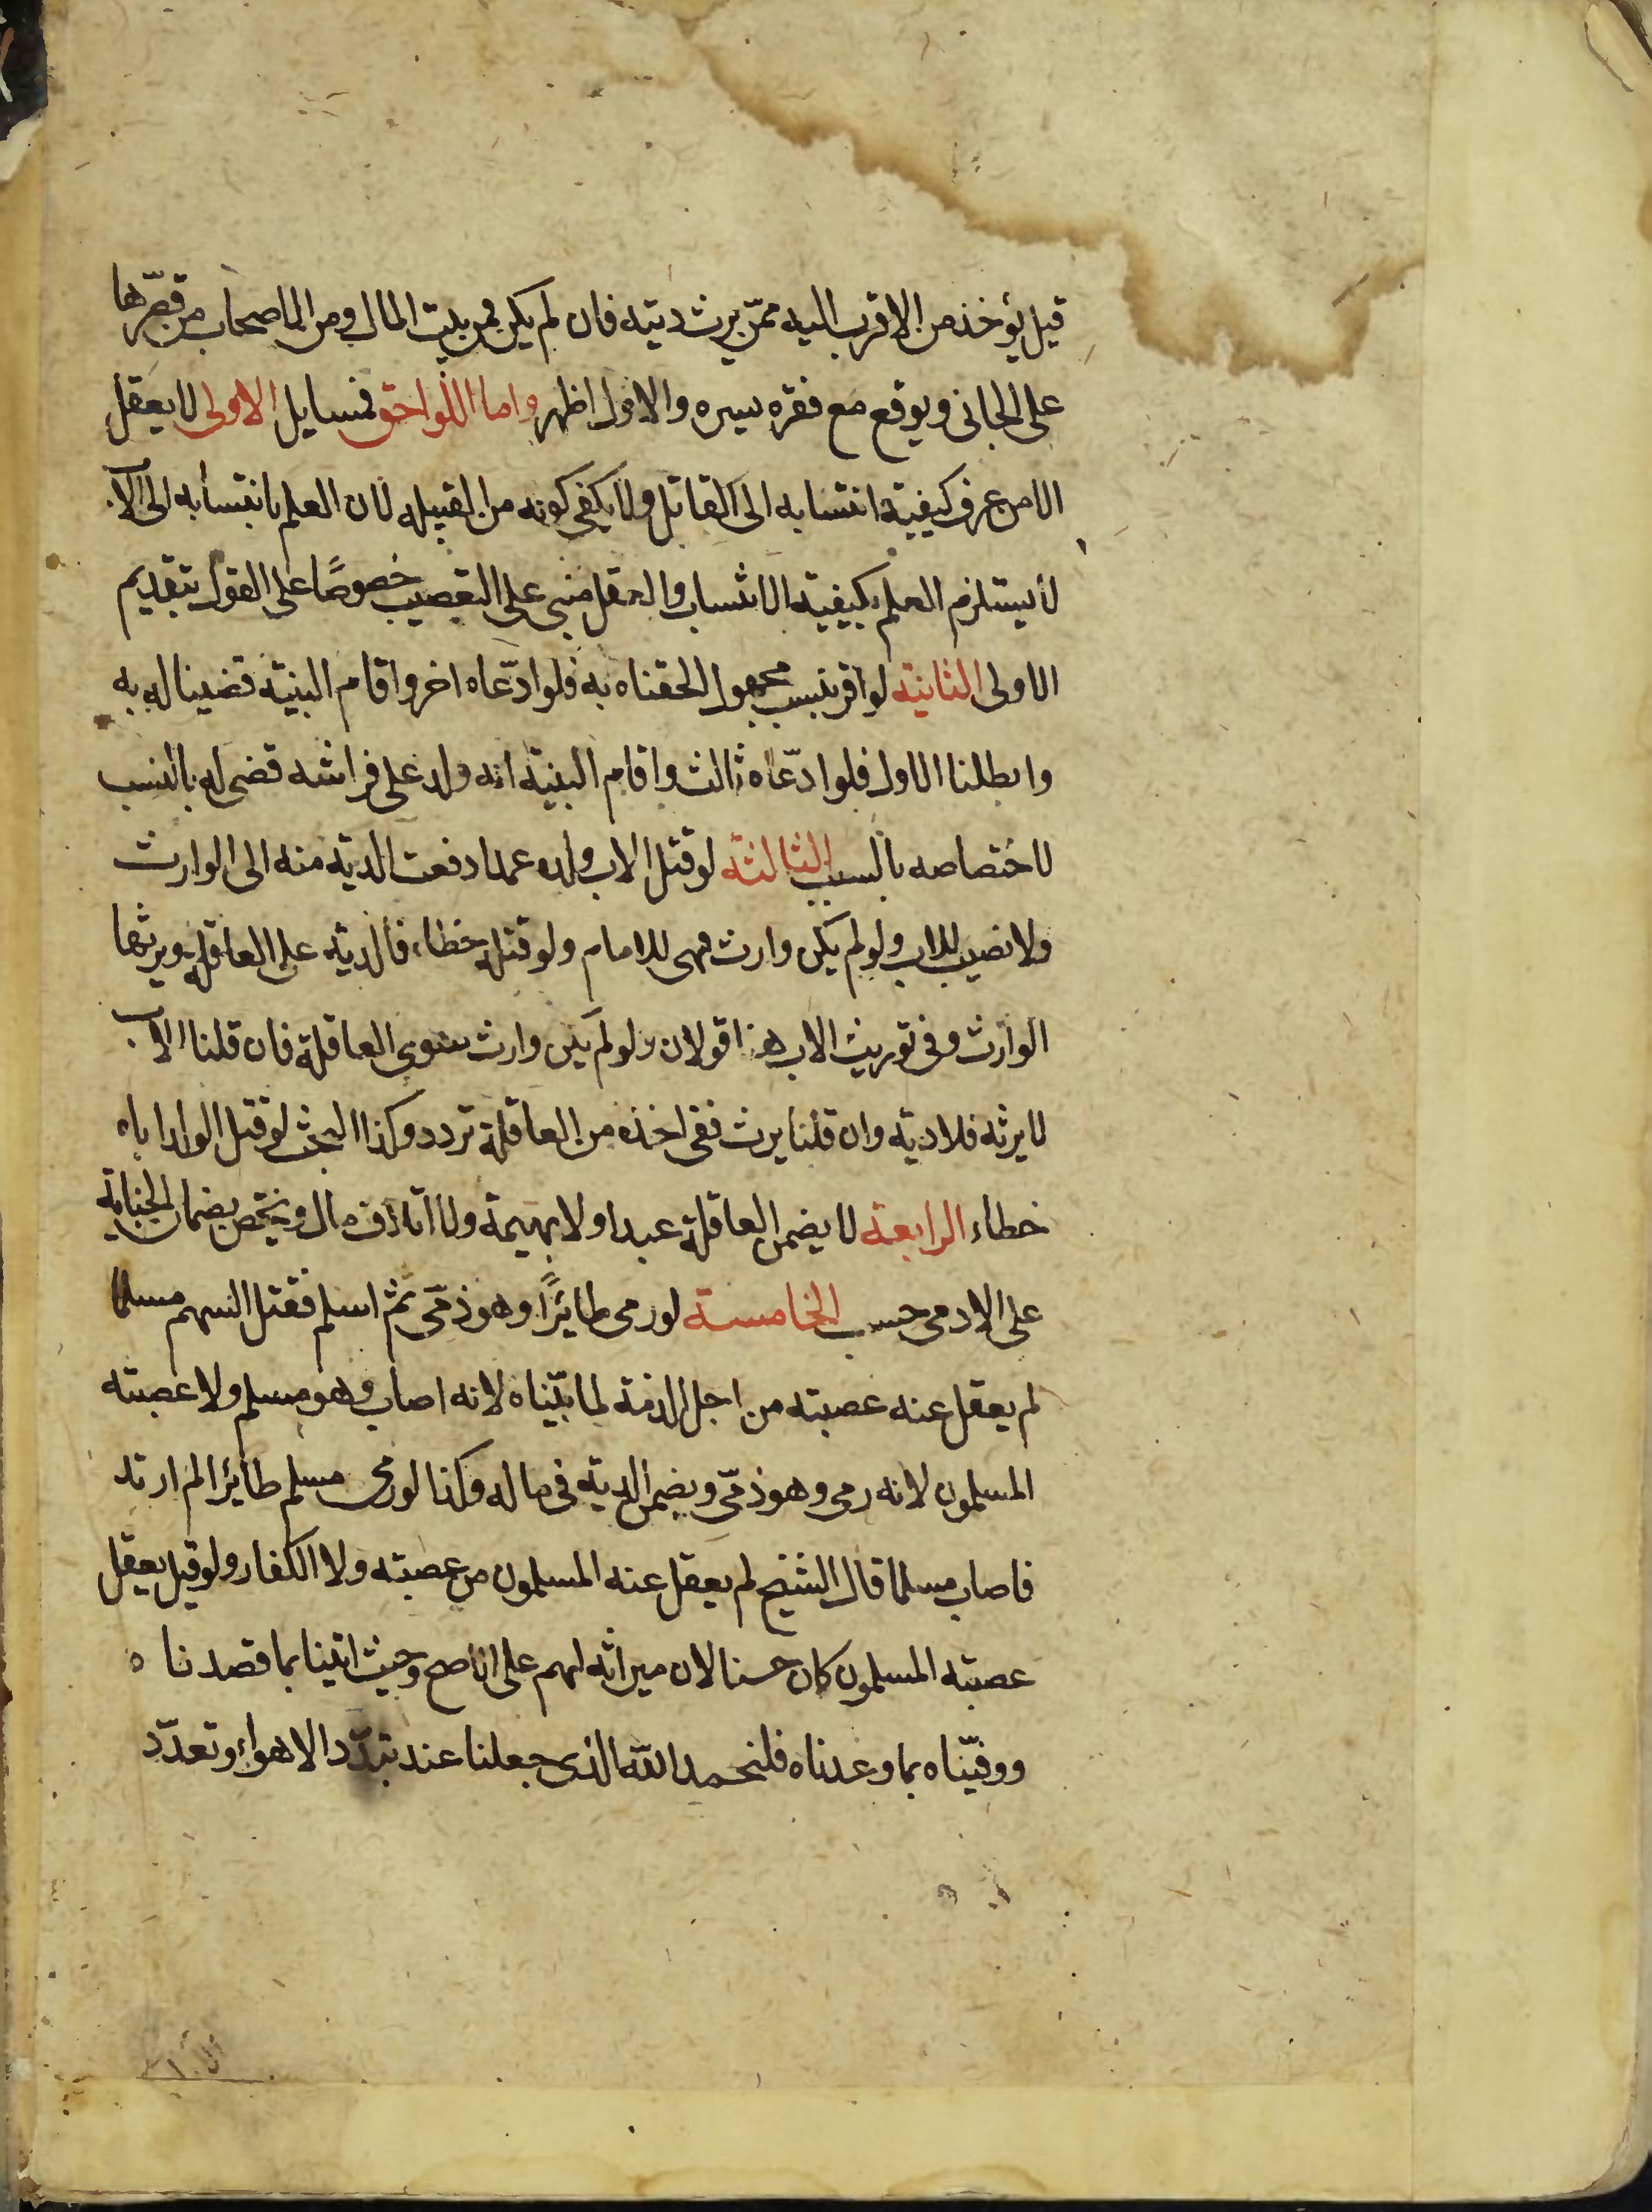 قيل يؤخذ من الاقرب اليه ممّن يرث ديته فان لم يكن فمن بيت المال ومن الاصحاب من قصّرها
على الجانى ويوقع مع فقره يسيره والاول اظهر واما اللواحق فمسايل الاولى لا يعقل
الا من عرف كيفية انتسابه الى القاتل ولا يكفى كونه من القبيله لان العلم بانتسابه الى الاب
لا يستلزم العلم بكيفية الانتساب والعقل مبنى على التعصيب خصوصًا على القول بتقديم
الاولى الثانية لو اقر بنسب مجهول الحقناه به فلو ادّعاه اخر واقام البينة قضينا له به
وابطلنا الاول فلو ادّعاه ثالث واقام البينة انه ولد على فراشه قضى له بالنسب
لاختصاصه بالسبب الثالثة لو قتل الاب ولده عمدا دفعت الدية منه الى الوارث
ولا نصيب للاب ولو لم يكن وارث فهى للامام ولو قتله خطاء فالدية على العاقلة ويرثها
الوارث وفى توريث الاب هنا قولان ولو لم يكن وارث سوى العاقلة فان قلنا الاب
لا يرثه فلا دية وان قلنا يرث ففى اخذه من العاقلة تردد وكذا البحث لو قتل الولد اباه
خطاء الرابعة لا يضمن العاقلة عبدا ولا بهيمة ولا اتلاف مال ويختص بضمان الجناية
على الادمى حسب الخامسة لو رمى طايرًا وهو ذمّى ثم اسلم فقتل السهم مسلما
لم يعقل عنه عصبته من اجل الذمة لما بيّناه لانه اصاب وهو مسلم ولا عصبته
المسلمون لانه رمى وهو ذمّى ويضمن الدية فى ماله وكذا لو رمى مسلم طايرا لم ارتد
فاصاب مسلما قال الشيخ لم يعقل عنه المسلمون من عصبته ولا الكفار ولو قيل يعقل
عصبته المسلمون كان حسنا لان ميراثه لهم على الاصح وحيث اتينا بما قصدناه
ووفيّناه بما وعدناه فلنحمد الله الذى جعلنا عند تبدّد الاهواء وتعدّد